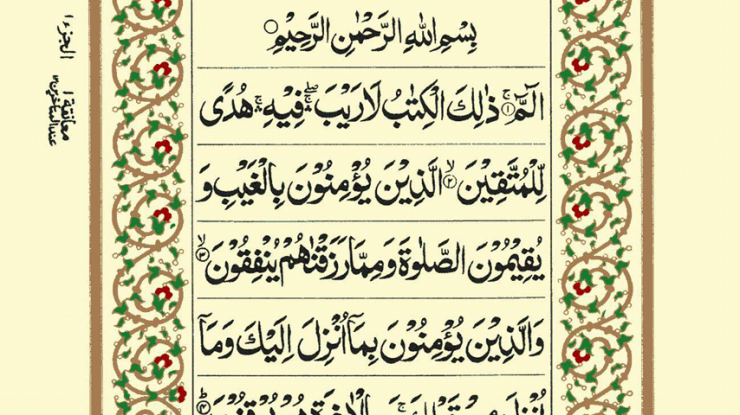 بِسْمِ اللهِ الرَّحْمٰنِ الرَّحِيْمِ
الٓمّٓ ۚ﴿۱﴾ ذٰلِكَ الْكِتٰبُ لَا رَيْبَ ۛۖ فِيْهِ ۛۚ هُدًى
لِّلْمُتَّقِيْنَ ۙ﴿۲﴾ الَّذِيْنَ يُؤْمِنُوْنَ بِالْغَيْبِ وَ
يُقِيْمُوْنَ الصَّلٰوةَ وَمِمَّا رَزَقْنٰهُمْ يُنْفِقُوْنَ ۙ﴿۳﴾
وَالَّذِيْنَ يُؤْمِنُوْنَ بِمَآ اُنْزِلَ اِلَيْكَ وَمَآ
الجزء ۱
معانقة ۱
عند المتأخرين ۱۲